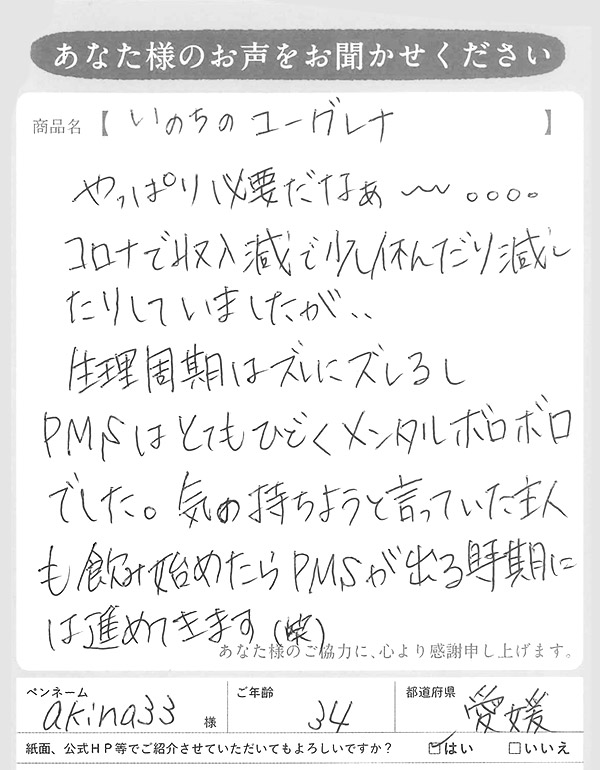 あなた様のお声をお聞かせください
商品名【 いのちのユーグレナ 】
やっぱり必要だなぁ〜〜。。。。
コロナで収入減で少し休んだり減し
たりしていましたが、、
生理周期はズレにズレるし
PMSはとてもひどくメンタルボロボロ
でした。気の持ちようと言っていた主人
も飲み始めたらPMSが出る時期に
は進めてきます(笑)
あなた様のご協力に、心より感謝申し上げます。
ペンネーム akina33 様 ご年齢 34 都道府県 愛媛
紙面、公式HP等でご紹介させていただいてもよろしいですか? ☑はい □いいえ